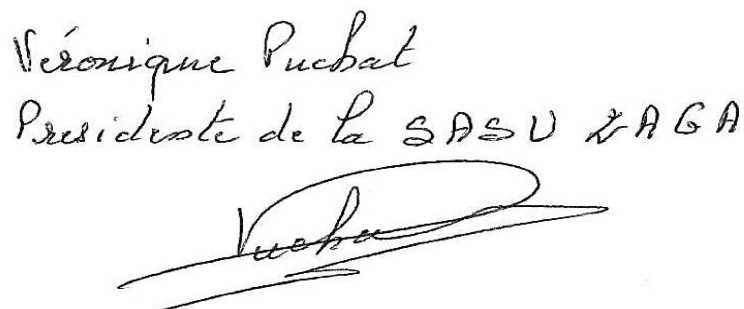 Véronique Puchat
Presidente de la SASU ZAGA